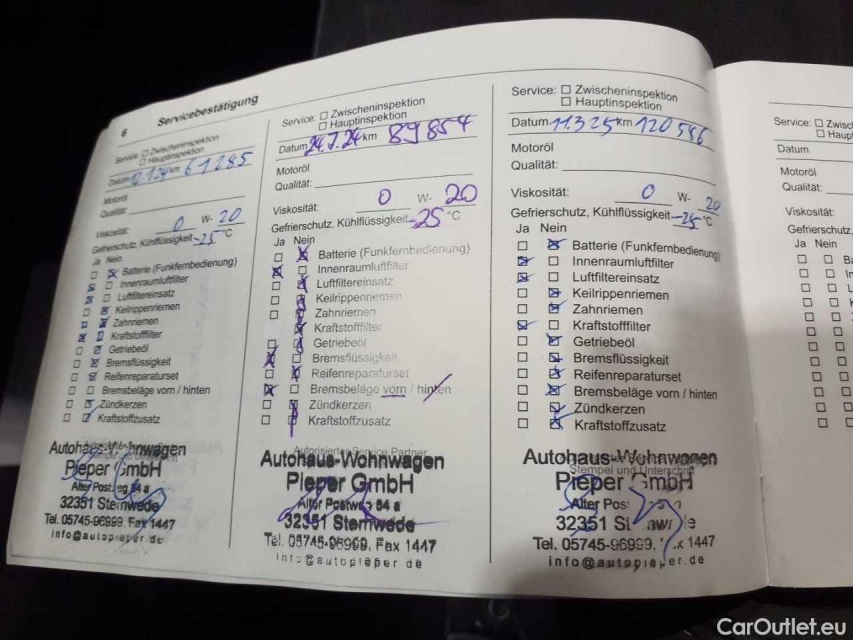 6 Servicebestätigung
Service: ☐ Zwischeninspektion
☐ Hauptinspektion
Datum 12.1.24 km 61285
Motoröl
Qualität:
Viskosität: 0 W- 20
Gefrierschutz, Kühlflüssigkeit -25 °C
Ja Nein
Batterie (Funkfernbedienung)
Innenraumluftfilter
Luftfiltereinsatz
Keilrippenriemen
Zahnriemen
Kraftstofffilter
Getriebeöl
Bremsflüssigkeit
Reifenreparaturset
Bremsbeläge vorn / hinten
Zündkerzen
Kraftstoffzusatz
Autohaus-Wohnwagen
Pieper GmbH
Alter Postweg 84 a
32351 Stemwede
Tel. 05745-96999, Fax 1447
info@autopieper.de
Service: ☐ Zwischeninspektion
☐ Hauptinspektion
Datum 24.7.24 km 89854
Motoröl
Qualität:
Viskosität: 0 W- 20
Gefrierschutz, Kühlflüssigkeit -25 °C
Ja Nein
Batterie (Funkfernbedienung)
Innenraumluftfilter
Luftfiltereinsatz
Keilrippenriemen
Zahnriemen
Kraftstofffilter
Getriebeöl
Bremsflüssigkeit
Reifenreparaturset
Bremsbeläge vorn / hinten
Zündkerzen
Kraftstoffzusatz
Autorisierter Service Partner
Autohaus-Wohnwagen
Pieper GmbH
Alter Postweg 84 a
32351 Stemwede
Tel. 05745-96969, Fax 1447
info@autopieper de
Service: ☐ Zwischeninspektion
☐ Hauptinspektion
Datum 11.3.25 km 120546
Motoröl
Qualität:
Viskosität: 0 W- 20
Gefrierschutz, Kühlflüssigkeit -25 °C
Ja Nein
Batterie (Funkfernbedienung)
Innenraumluftfilter
Luftfiltereinsatz
Keilrippenriemen
Zahnriemen
Kraftstofffilter
Getriebeöl
Bremsflüssigkeit
Reifenreparaturset
Bremsbeläge vorn / hinten
Zündkerzen
Kraftstoffzusatz
Autohaus-Wohnwagen
Stempel und Unterschrift
Pieper GmbH
Alter Pos
32351 St
Tel. 05745-96999, Fax 1447
info@autopieper.de
Service: ☐ Zwisc
☐ Haup
Datum
Motoröl
Qualität:
Viskosität:
Gefrierschutz,
Ja Nein
CarOutlet.eu